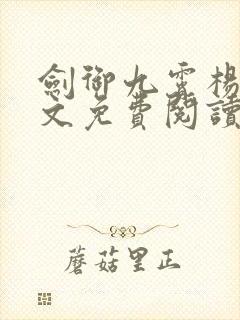 劍御九霄楊
文免費閱讀
蘑菇里正